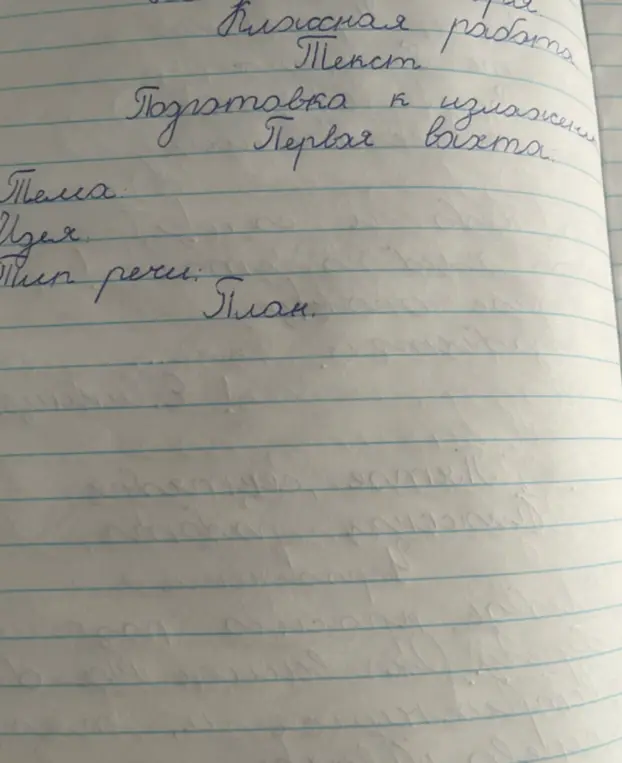 Классная работа
Текст
Подготовка к изложению
Первая вахта.
Тема:
Идея.
Тип речи:
План.